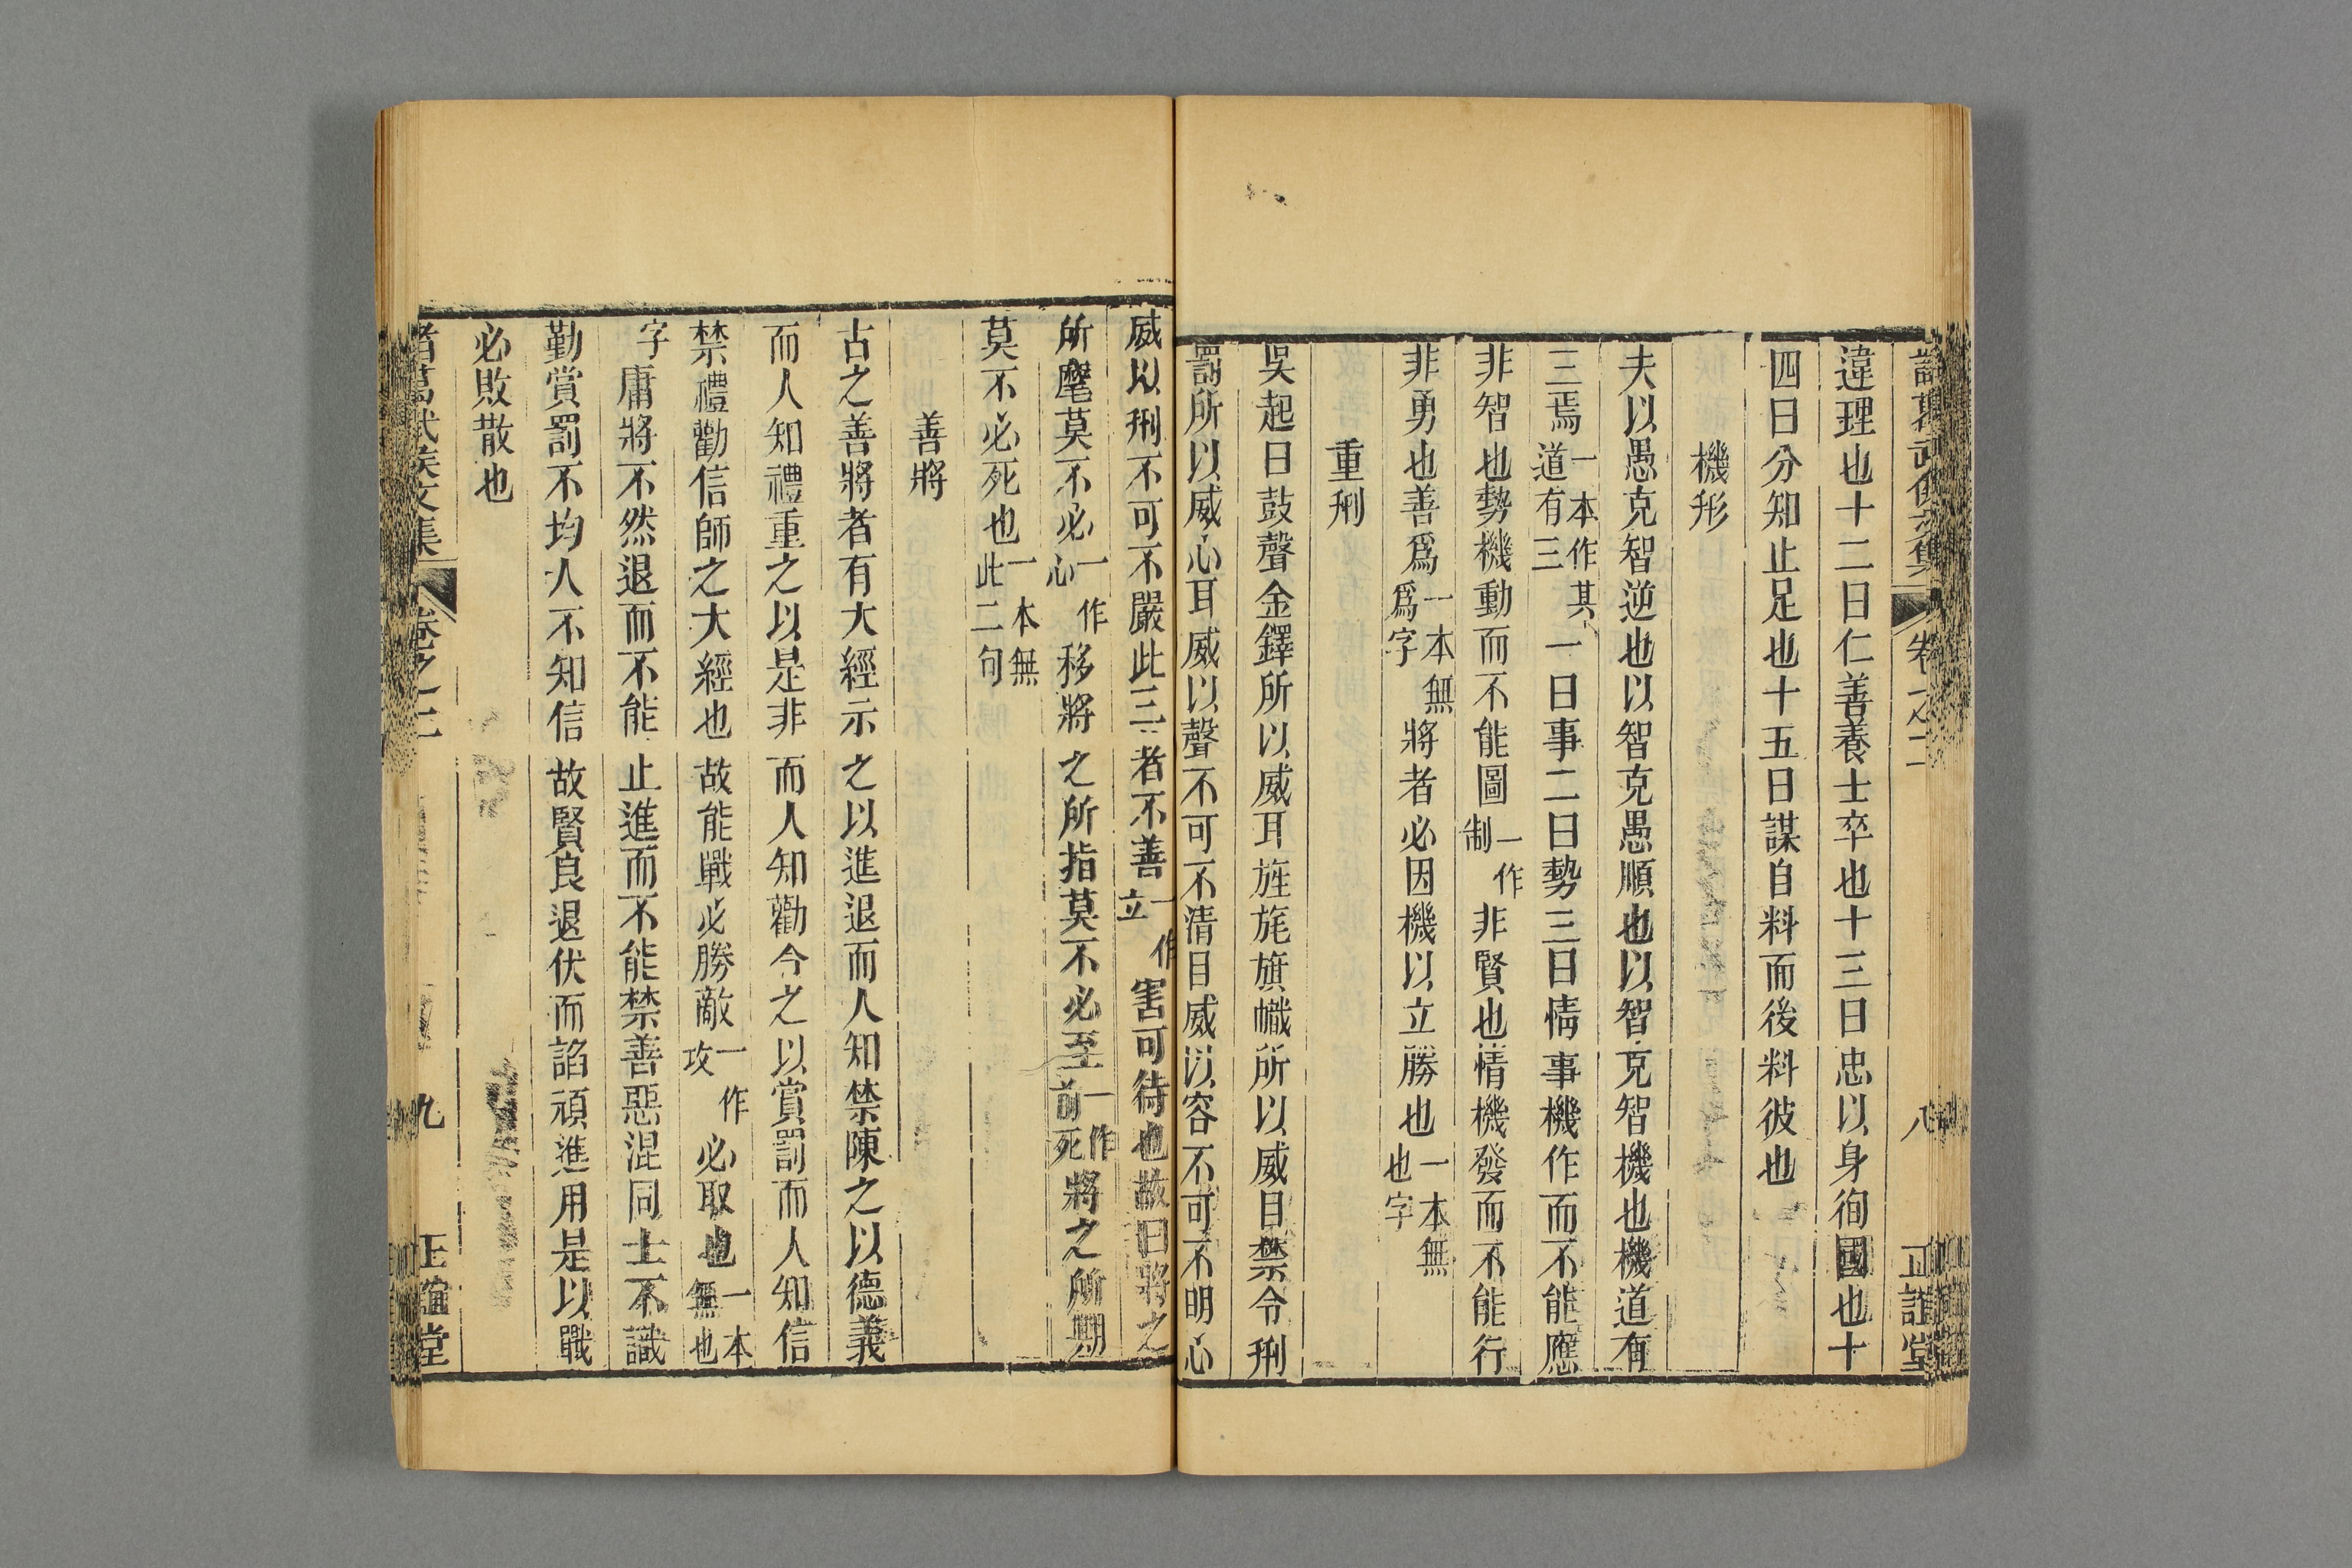 諸葛武侯文集 卷之二 八 正誼堂
違理也十二曰仁善養士卒也十三曰忠以身徇國也十
四曰分知止足也十五曰謀自料而後料彼也
機形
夫以愚克智逆也以智克愚順也以智克智機也機道有
三焉一本作其道有三一曰事二曰勢三曰情事機作而不能應
非智也勢機動而不能圖一作制非賢也情機發而不能行
非勇也善爲一本無爲字將者必因機以立勝也一本無也字
重刑
吳起曰鼓聲金鐸所以威耳旌旄旗幟所以威目禁令刑
罰所以威心耳威以聲不可不清目威以容不可不明心
威以刑不可不嚴此三者不善一作立害可待也故曰將之
所麾莫不必一作心移將之所指莫不必至一作前死將之所期
莫不必死也一本無此二句
善將
古之善將者有大經示之以進退而人知禁陳之以德義
而人知禮重之以是非而人知勸今之以賞罰而人知信
禁禮勸信師之大經也故能戰必勝敵一作攻必取也一本無也
字庸將不然退而不能止進而不能禁善惡混同士不識
勤賞罰不均人不知信故賢良退伏而諂頑進用是以戰
必敗散也
諸葛武侯文集 卷之二 九 正誼堂